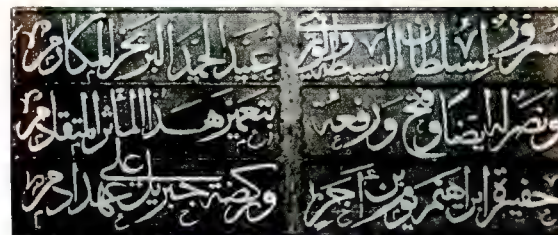 سرور لسلطان البسيطة والورى عبد الحميد البر بحر المكارم
ونصر له ايضا وفتح ورفعة بتعمير هذا المأثر المتقادم
حفيرة ابراهيم بن آجر وركضة جبريل على عهد ادم